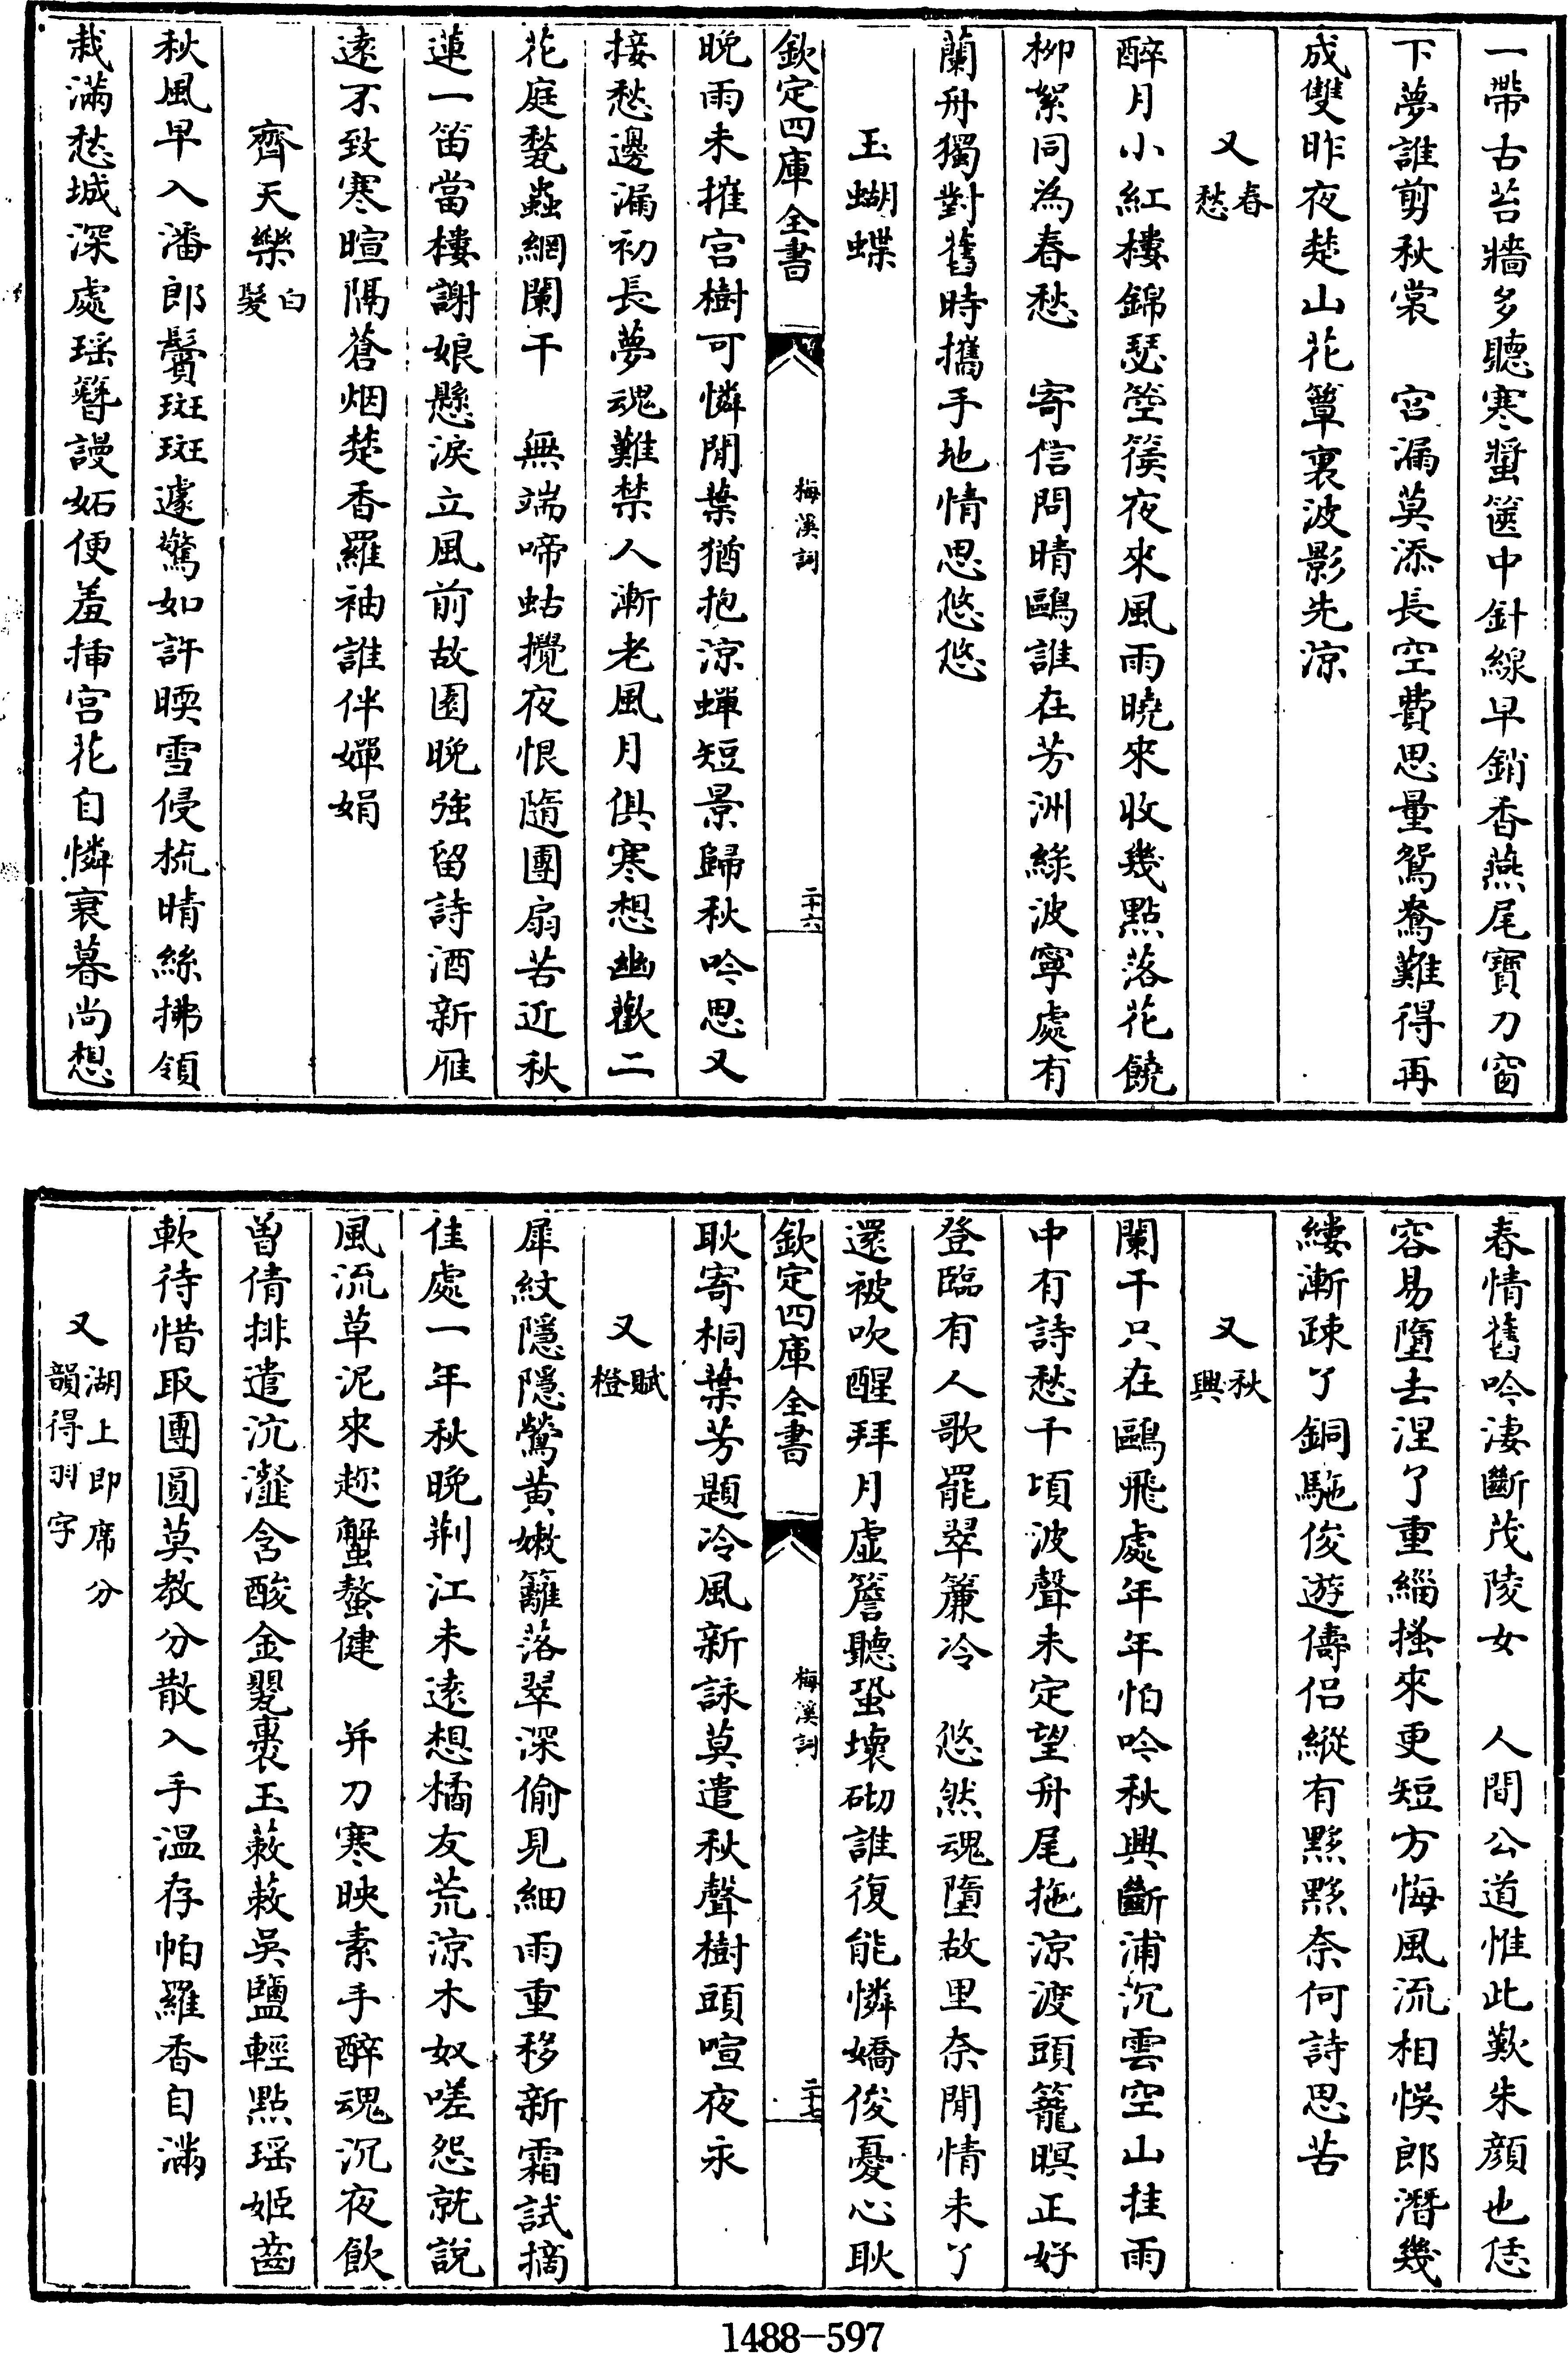 一帶古苔牆多聽寒螿篋中針線早銷香燕尾寶刀窗
下夢誰剪秋裳　宮漏莫添長空費思量鴛鴦難得再
成雙昨夜楚山花簟裏波影先涼
又春愁
醉月小紅樓錦瑟箜篌夜來風雨曉來收幾點落花饒
柳絮同為春愁　寄信問晴鷗誰在芳洲綠波寧處有
蘭舟獨對舊時攜手地情思悠悠
玉蝴蝶
欽定四庫全書
梅溪詞
二十六
晚雨未摧宮樹可憐閒葉猶抱涼蟬短景歸秋吟思又
接愁邊漏初長夢魂難禁人漸老風月俱寒想幽歡二
花庭甃蟲網闌干　無端啼蛄攪夜恨隨團扇苦近秋
蓮一笛當樓謝娘懸淚立風前故園晚強留詩酒新雁
遠不致寒暄隔蒼烟楚香羅袖誰伴嬋娟
齊天樂白髮
秋風早入潘郎鬢斑斑遽驚如許暝雪侵梳晴絲拂領
栽滿愁城深處瑶簪謾妬便羞揷宮花自憐衰暮尚想
春情舊吟淒斷茂陵女　人間公道惟此歎朱顏也恁
容易墮去涅了重緇搔來更短方悔風流相悞郎潛幾
縷漸疎了銅駞俊遊儔侶縱有黟黟奈何詩思苦
又秋興
闌干只在鷗飛處年年怕吟秋興斷浦沉雲空山挂雨
中有詩愁千頃波聲未定望舟尾拖涼渡頭籠暝正好
登臨有人歌罷翠簾冷　悠然魂墮故里奈閒情未了
還被吹醒拜月虛簷聽蛩壞砌誰復能憐嬌俊憂心耿
欽定四庫全書
梅溪詞
二十七
耿寄桐葉芳題冷風新詠莫遣秋聲樹頭喧夜永
又賦橙
犀紋隱隱鶯黄嫩籬落翠深偷見細雨重移新霜試摘
佳處一年秋晚荆江未遠想橘友荒涼木奴嗟怨就說
風流草泥來趂蟹螯健　并刀寒映素手醉魂沉夜飲
曽倩排遣沉瀣含酸金罌裹玉蔌蔌吳鹽輕點瑶姬齒
軟待惜取團圓莫教分散入手溫存帕羅香自滿
又湖上即席分韻得羽字
1488-597